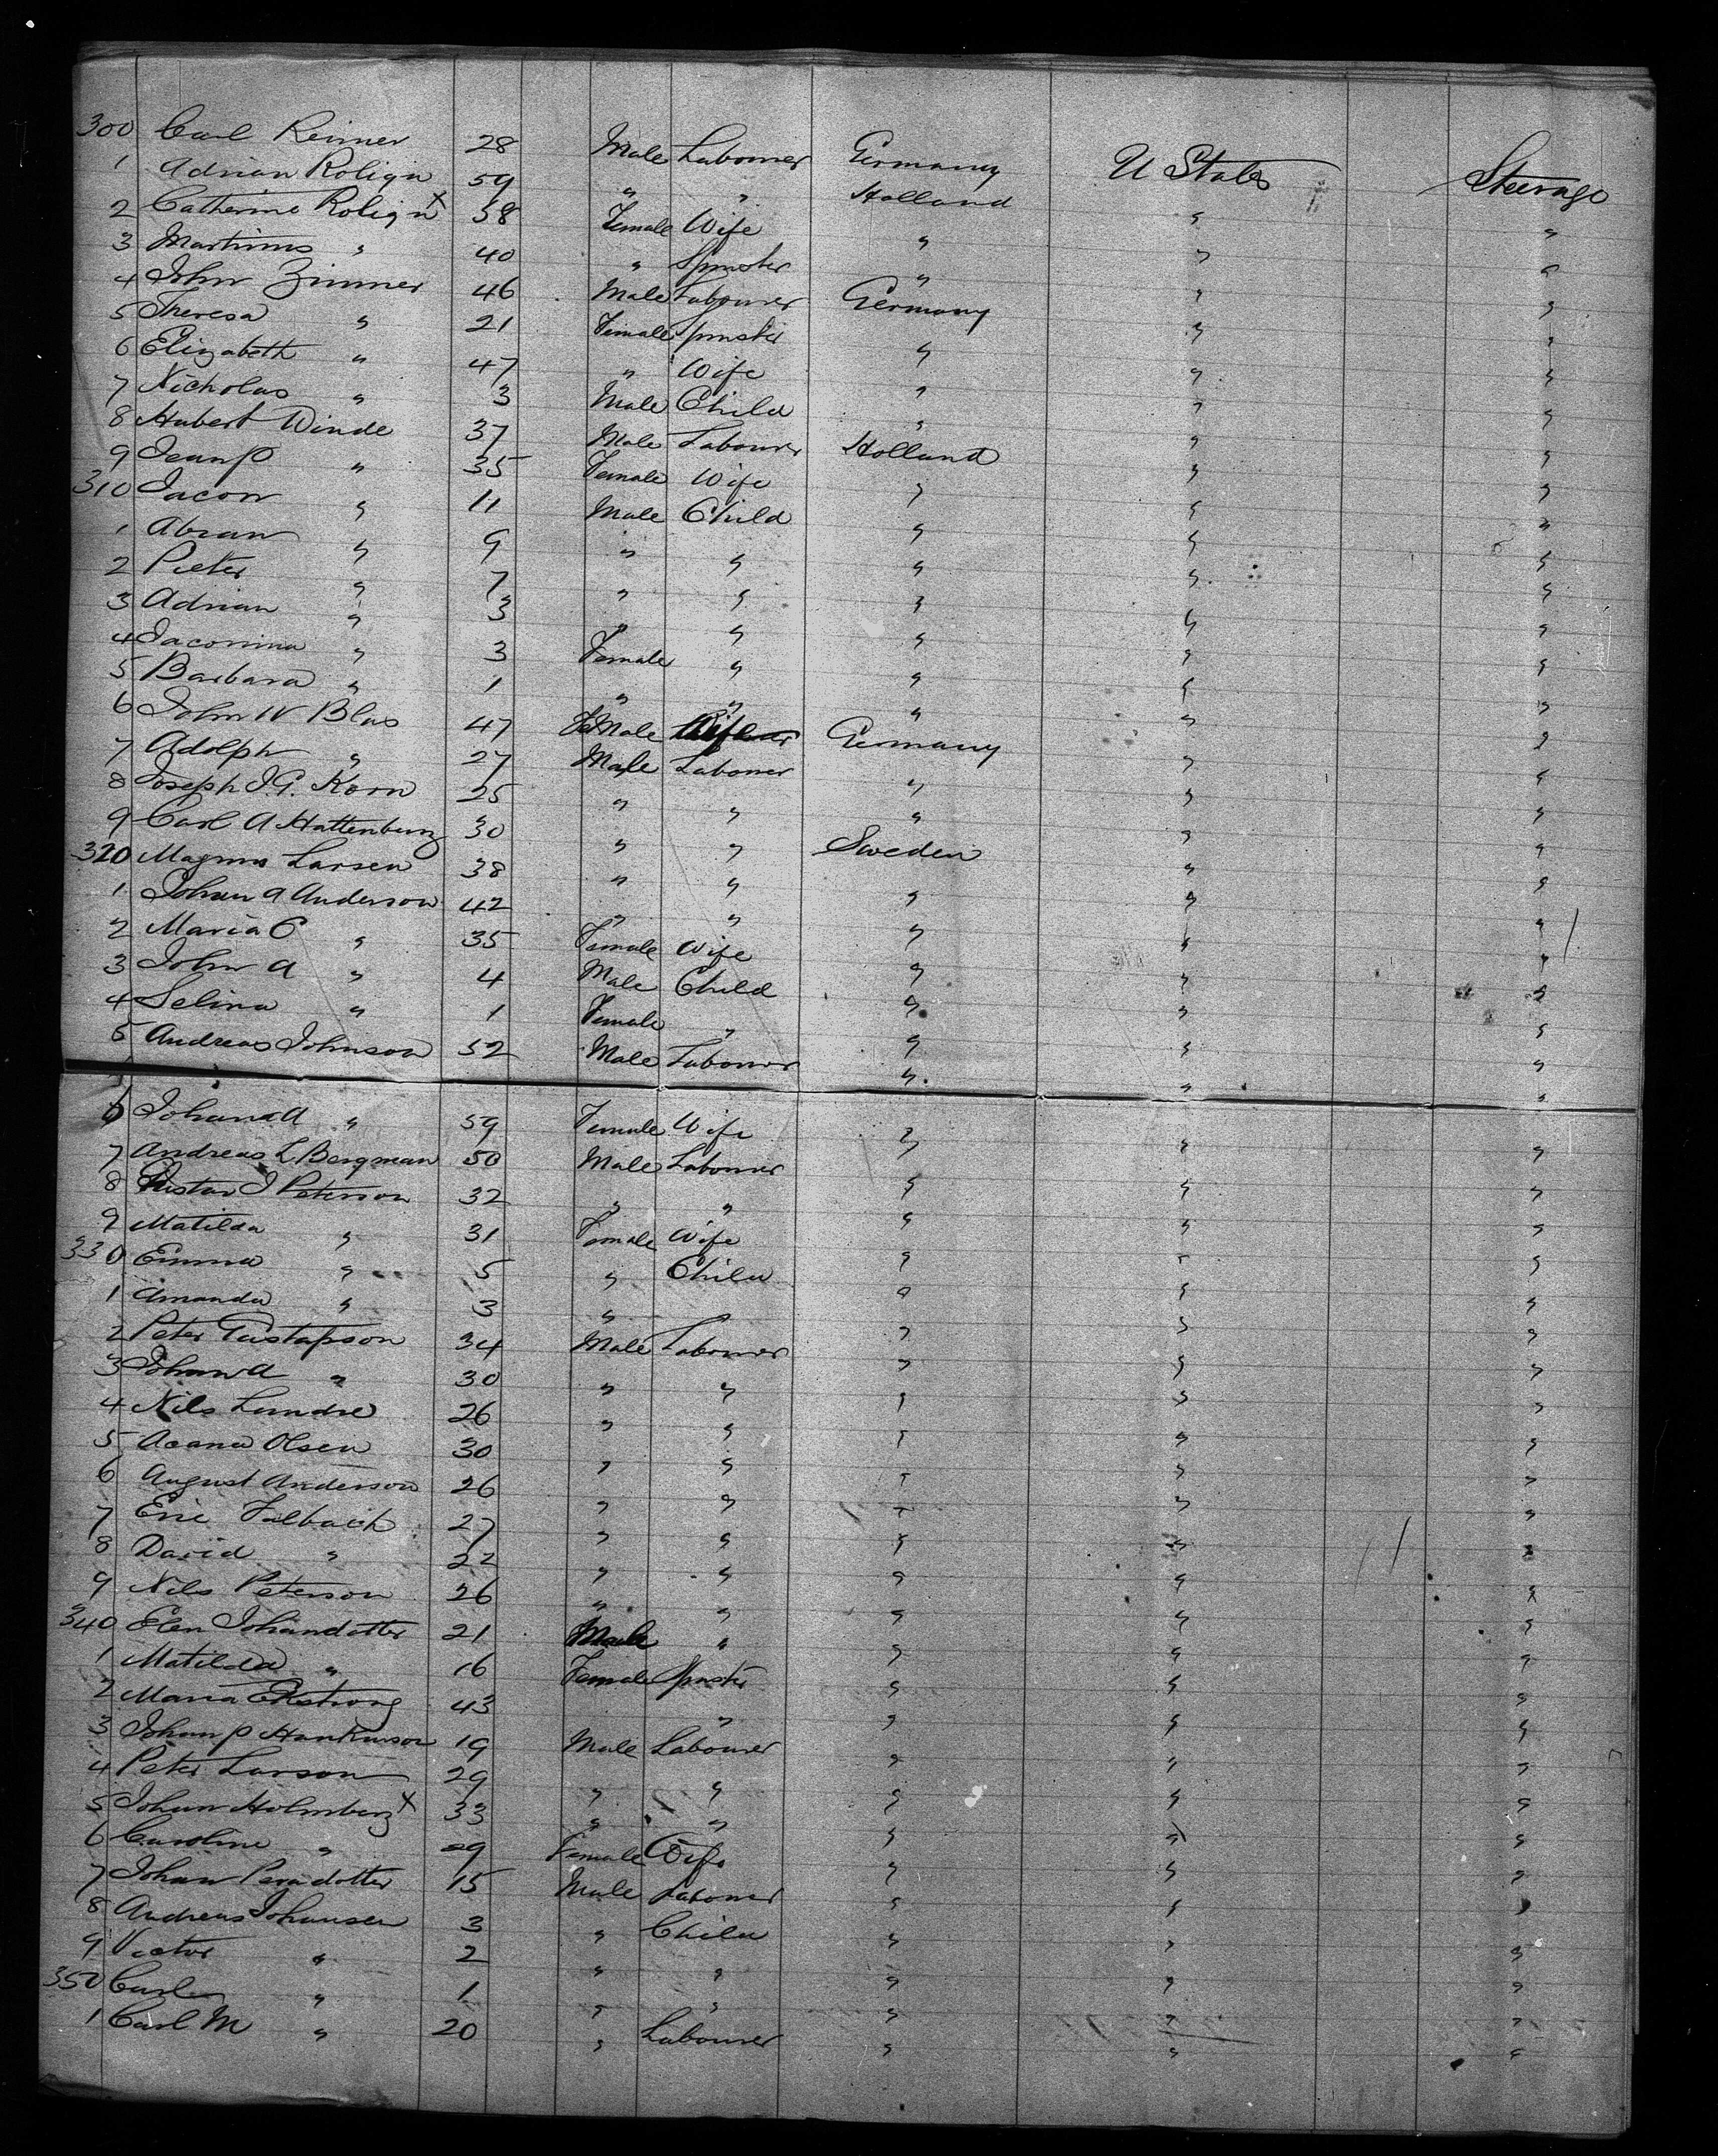 300 Carl Reimer 28 Male Labourer Germany U States Steerage
1 Adrian Roligu 59 " " Holland " "
2 Catherine Roligu x 58 Female Wife " " "
3 Martinus " 40 " Spinster " " "
4 John Zimmer 46 Male Labourer Germany " "
5 Theresa " 21 Female Spinster " " "
6 Elizabeth " 47 " Wife " " "
7 Nicholas " 3 Male Child " " "
8 Hubert Winde 37 Male Labourer Holland " "
9 Jean P " 35 Female Wife " " "
310 Jacon " 11 Male Child " " "
1 Abram " 9 " " " " "
2 Pieter " 7 " " " " "
3 Adrian " 3 " " " " "
4 Jacomina " 3 Female " " " "
5 Barbara " 1 " " " " "
6 John W Blas 47 FeMale Germany " "
7 Adolph " 27 Male Labourer " " "
8 Joseph J.G. Korn 25 " " " " "
9 Carl A Hattenburg 30 " " Sweden " "
320 Magnus Larsen 38 " " " " "
1 Johan A Anderson 42 " " " " "
2 Maria C " 35 Female Wife " " "
3 John A " 4 Male Child " " "
4 Selina " 1 Female " " " "
5 Andreas Johnson 52 Male Labourer " " "
6 Johana A " 59 Female Wife " " "
7 Andreas L Bergman 50 Male Labourer " " "
8 Gustav J Peterson 32 " " " " "
9 Matilda " 31 Female Wife " " "
330 Emma " 5 " Child " " "
1 Amanda " 3 " " " " "
2 Peter Gustafson 34 Male Labourer " " "
3 Johan A " 30 " " " " "
4 Nils Lundre 26 " " " " "
5 Olsen 30 " " " " "
6 August Anderson 26 " " " " "
7 Eric Falback 27 " " " " "
8 David " 22 " " " " "
9 Nils Peterson 26 " " " " "
340 Elen Johandotter 21 Male " " " "
1 Matilda " 16 Female Spinster " " "
2 Maria Ekstrong 43 " " " "
3 Johan P Hankinson 19 Male Labourer " " "
4 Peter Larson 29 " " " " "
5 Johan Holmberg x 33 " " " " "
6 Caroline " 29 Female Wife " " "
7 Johan Persdotter 15 Male Labourer " " "
8 Andreas Johansen 3 " Child " " "
9 Victor " 2 " " " " "
350 Carl " 1 " " " " "
1 Carl M " 20 " Labourer " " "